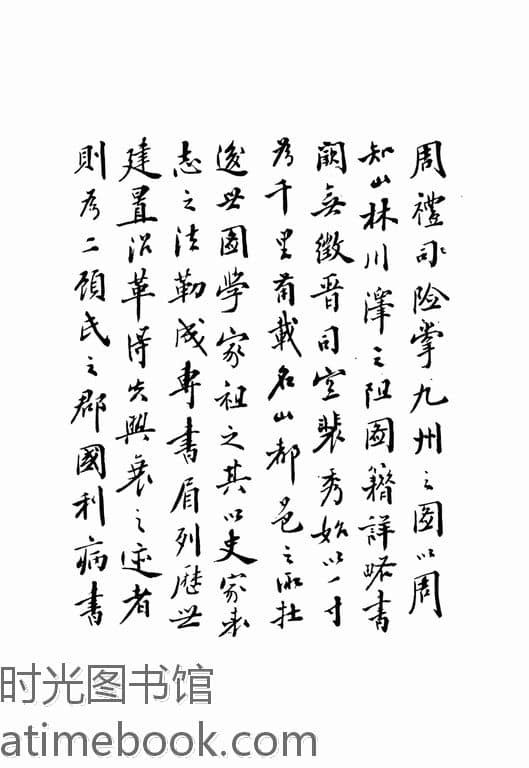 周禮司險掌九州之圖以周
知山林川澤之阻圖籍詳略書
闕無徵晉司空裴秀始以一寸
為千里備載名山都邑之所在
後世圖學家祖之其以史家表
志之法勒成專書眉列歷世
建置沿革得失興衰之迹者
則為二顧氏之郡國利病書
时光图书馆
atimebook.com